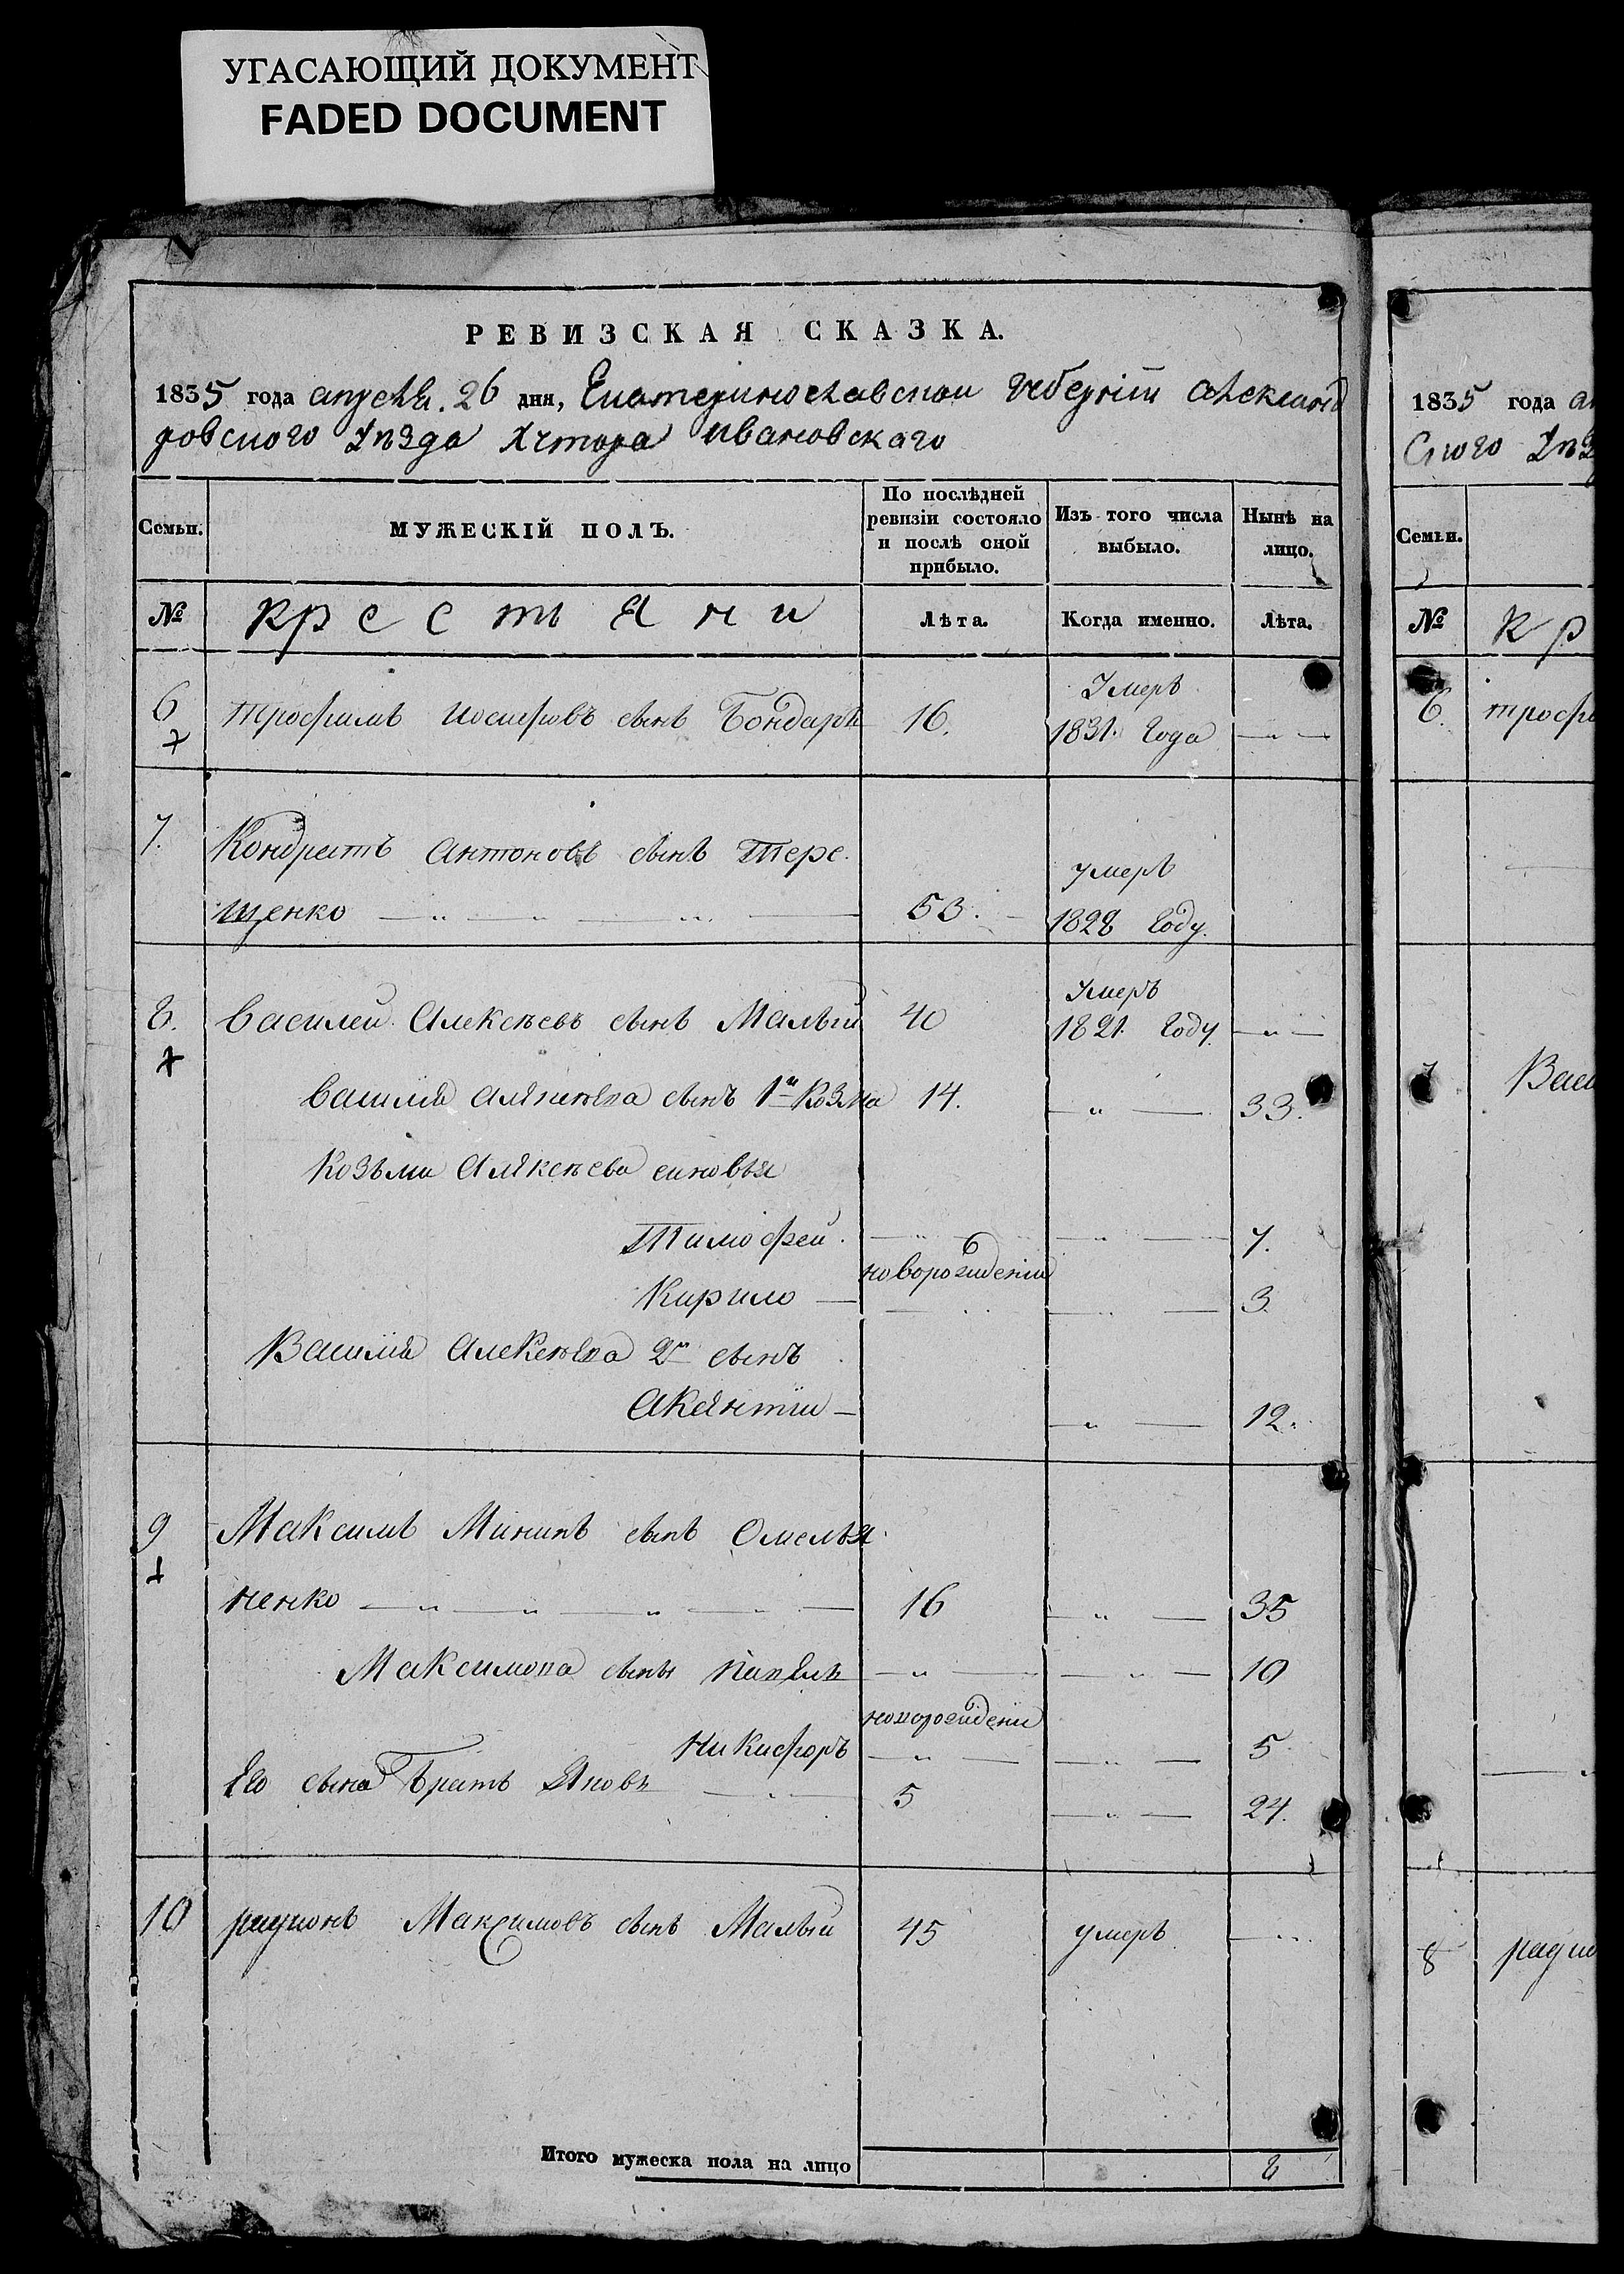 УГАСАЮЩИЙ ДОКУМЕНТ
FADED DOCUMENT
РЕВИЗСКАЯ СКАЗКА.
1835 года апреля. 26 дня, Екатеринославской губернiи Александ
ровского уѣзда Хутора Ивановскаго
Семьи.
МУЖЕСКIЙ ПОЛЪ.
По послѣдней
ревизiи состояло
и послѣ оной
прибыло.
Изъ того числа
выбыло.
Нынѣ на
лицо.
№
крестяни
Лѣта.
Когда именно.
Лѣта.
6 трофимъ иосифовъ сынъ Бондарь 16. Умеръ
1831. года
7. Кондратъ антоновъ сынъ Тере
щенко 53. умеръ
1828 году.
8. Василей Алексѣевъ сынъ Малый 40 Умеръ
1821. году
Василія сынъ 1й Козма 14. 33.
Козьми синовья
Тимофей 7.
новорождении
Кирило 3.
Василія 2й сынъ
Акянтiи 12.
9 Максимъ Мининъ сынъ Омелья
ненко 16 35
Максимова сыны 10
новорождени
Никифоръ 5
Его Братъ Яковъ 5 24.
10 Максимовъ сынъ Малый 45 умеръ
Итого мужеска пола на лицо 8
1835 года а
Ского Уѣз
Семьи.
№ кр
6. трофи
7 Васи
8